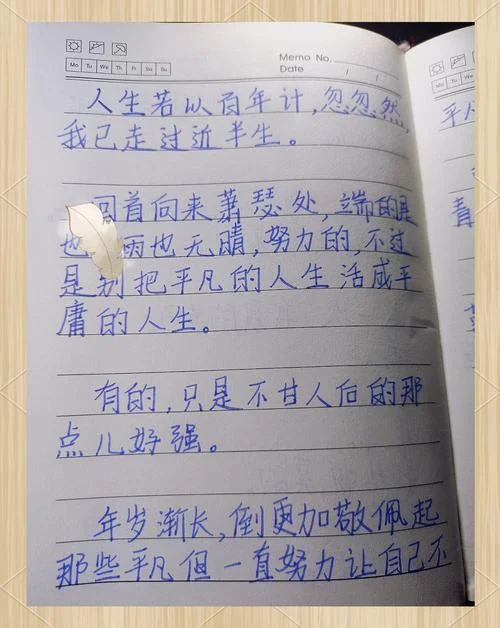 Memo No.
Mo Tu We Th Fr Sa Su
Date / /
人生若以百年计,忽忽然,
我已走过近半生。
回首向来萧瑟处,端的是
也 雨也无晴,努力的,不过
是别把平凡的人生活成平
庸的人生。
有的,只是不甘人后的那
点儿好强。
年岁渐长,倒更加敬佩起
那些平凡但一直努力让自己不
平凡
毒